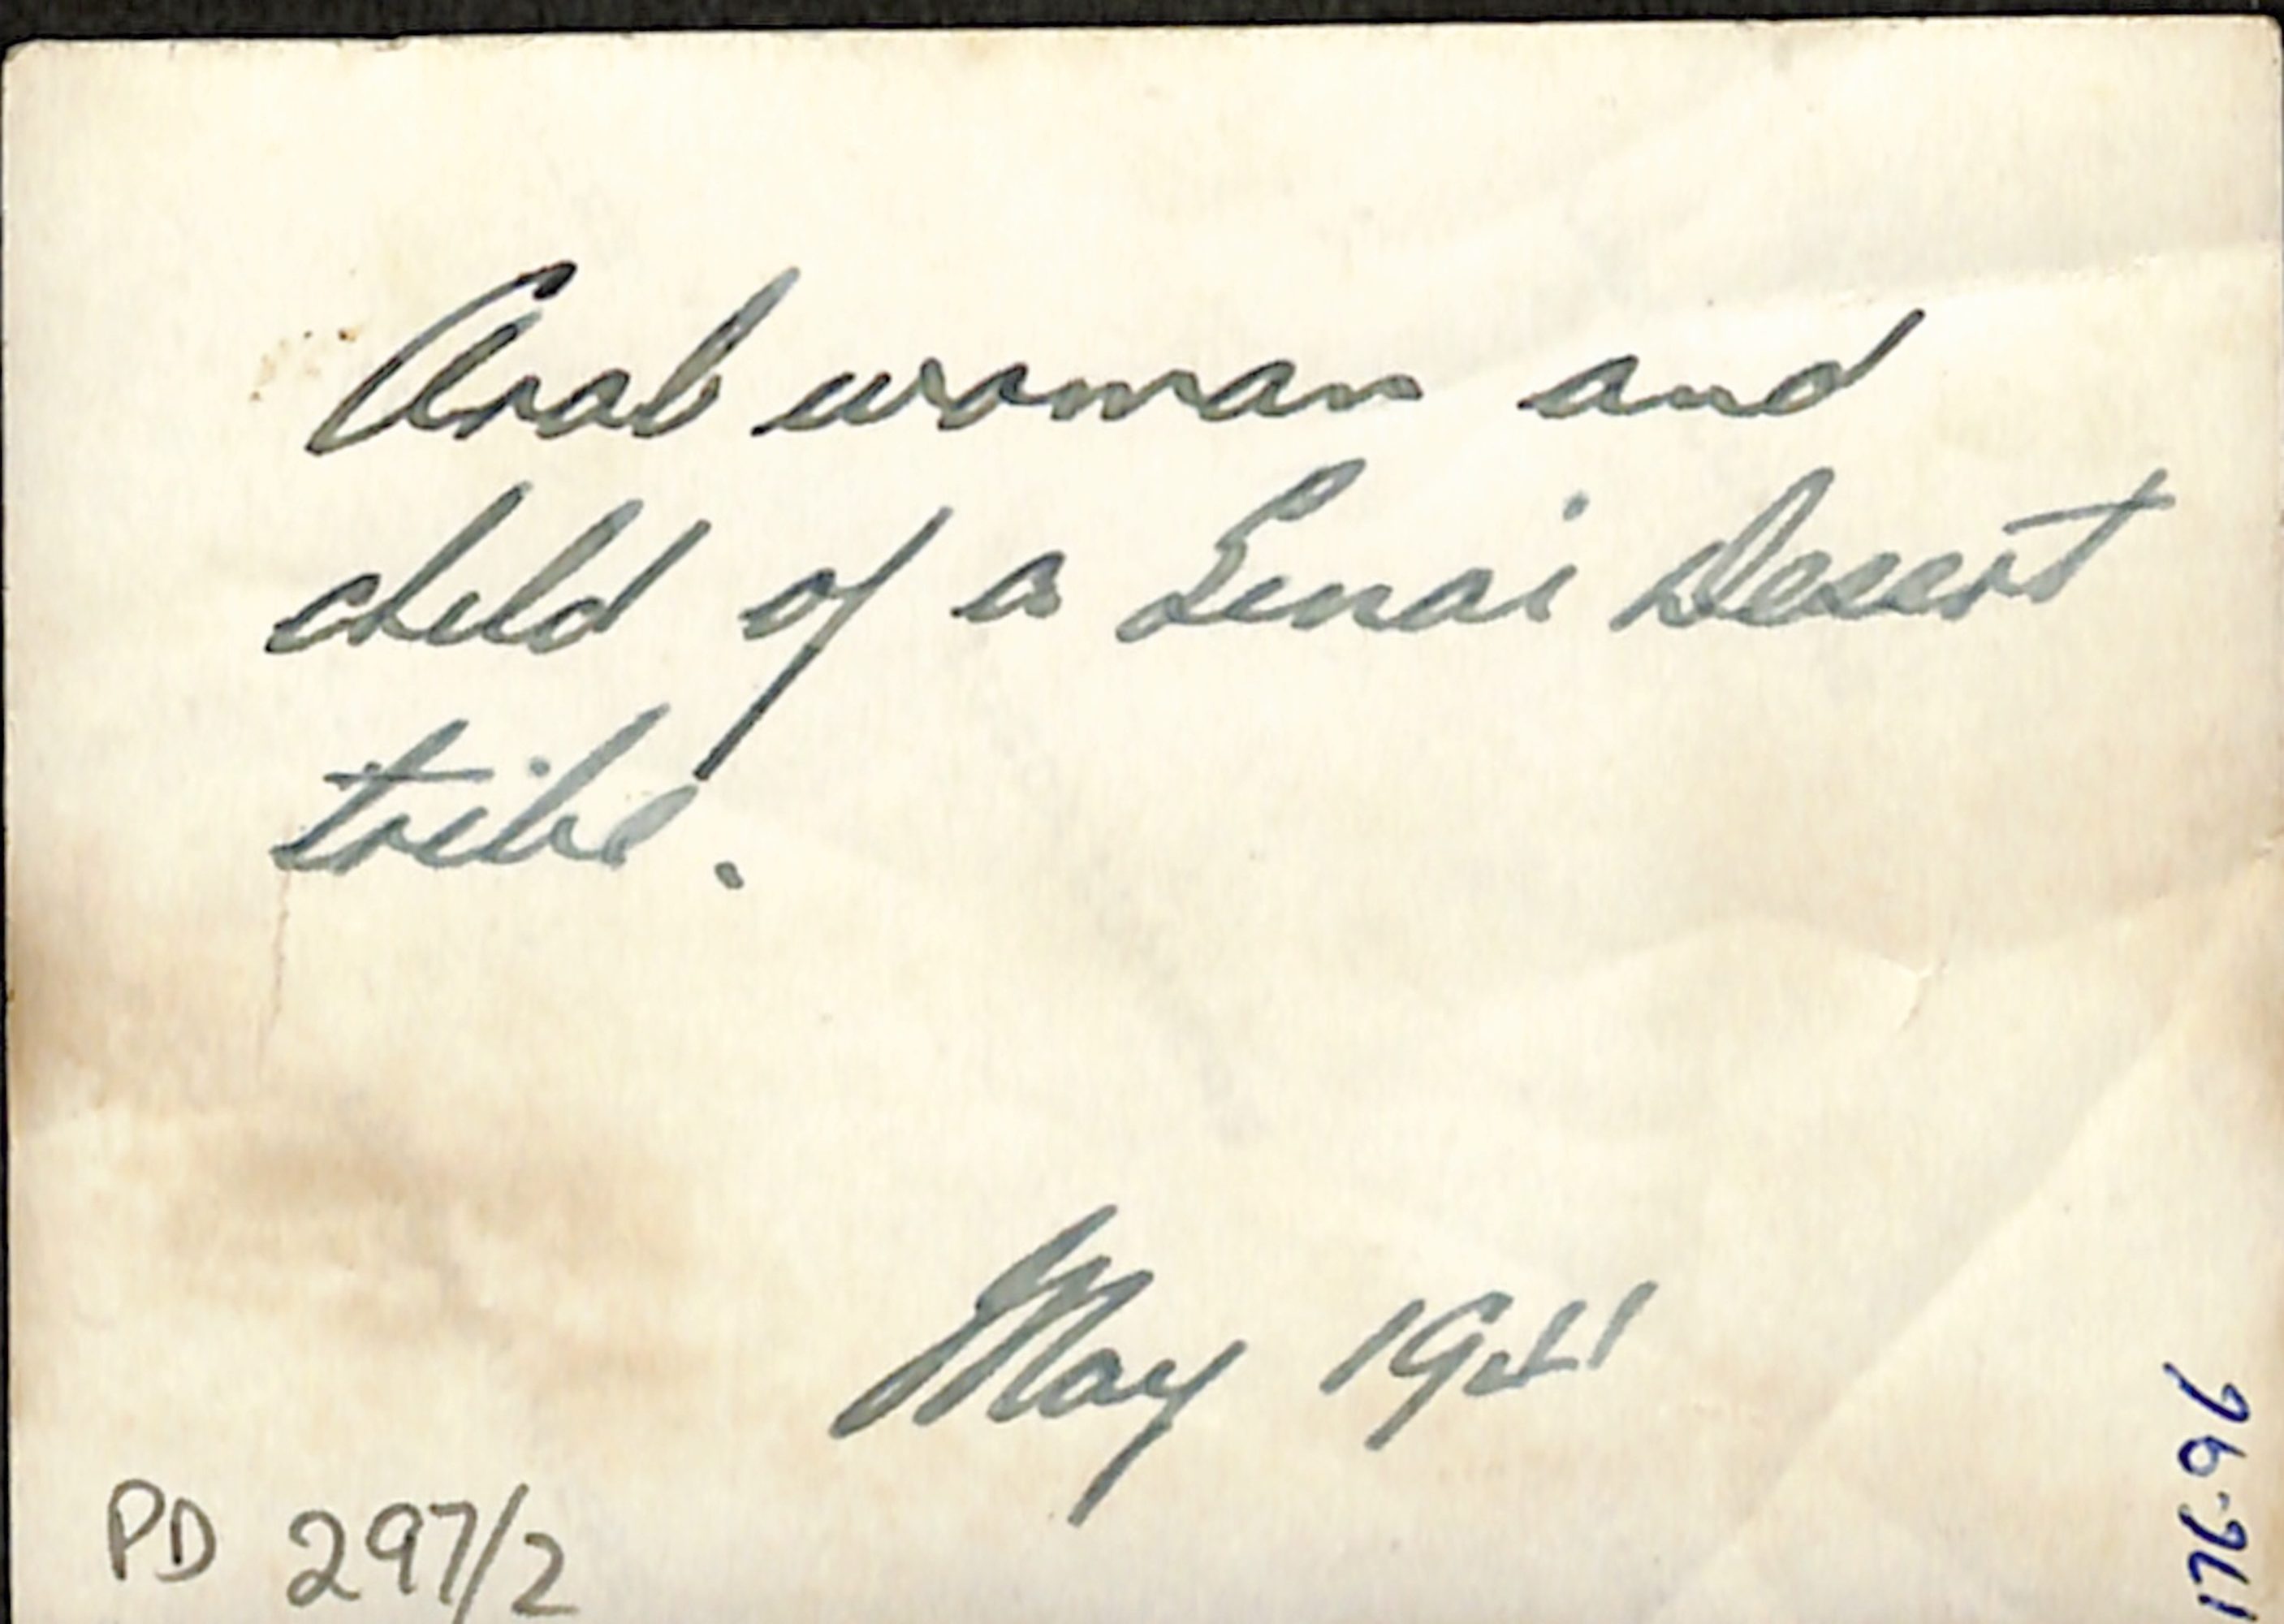 Arab woman and
child of a Sinai Desert
tribe.
May 1941
PD 297/2